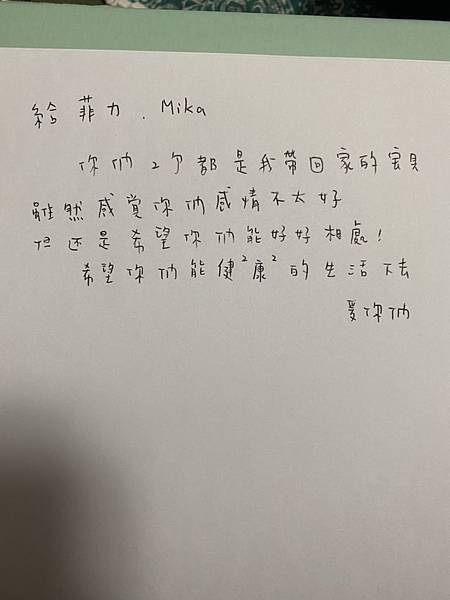 給菲力.Mika
你們2个都是我帶回家的寶貝
雖然感覺你们感情不太好
但还是希望你们能好好相處!
希望你们能健²康²的生活下去
愛你们